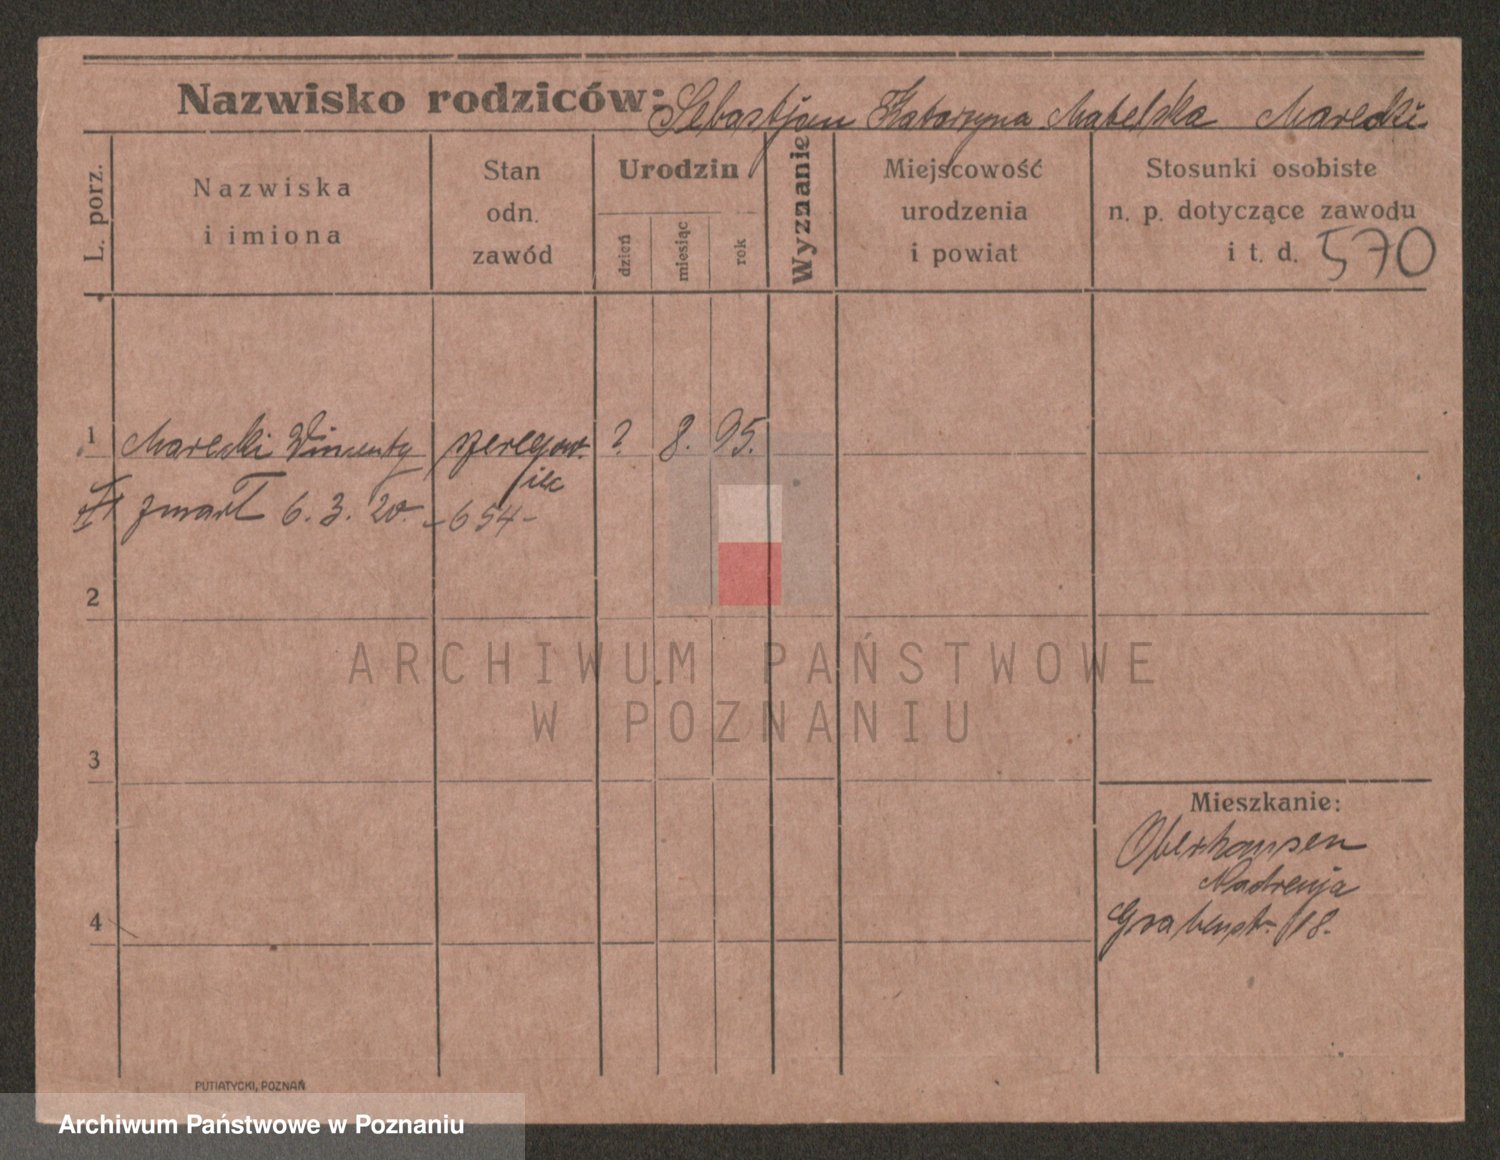 Nazwisko rodziców: Sebastjan Katarzyna Matelska Marecki
L. porz.
Nazwiska
i imiona
Stan
odn.
zawód
Urodzin
dzień
miesiąc
rok
Wyznanie
Miejscowość
urodzenia
i powiat
Stosunki osobiste
n. p. dotyczące zawodu
i t. d. 570
1 Marecki Wincenty szeregow- ?. 8. 95.
iec
zmarł 6. 3. 20. -654-
2
ARCHIWUM PAŃSTWOWE
W POZNANIU
3
Mieszkanie:
Oberhausen
Nadrenja
4
Grabenstr. 18.
PUTIATYCKI, POZNAŃ
Archiwum Państwowe w Poznaniu